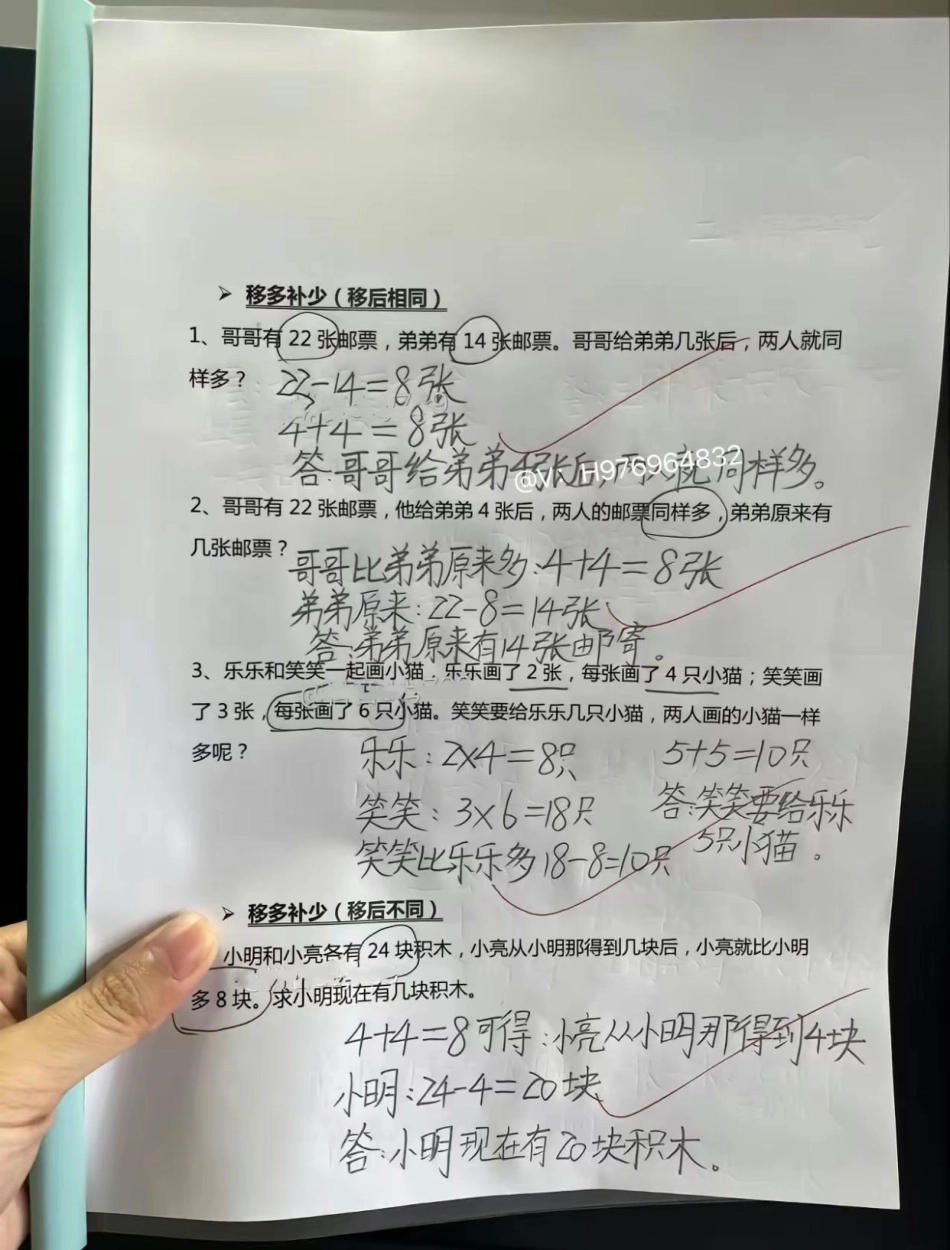 ➢ 移多补少（移后相同）
1、哥哥有 22 张邮票，弟弟有 14 张邮票。哥哥给弟弟几张后，两人就同
样多？ 22-14=8张
4+4=8张
答:哥哥给弟弟4张后,两人就同样多。
2、哥哥有 22 张邮票，他给弟弟 4 张后，两人的邮票同样多，弟弟原来有
几张邮票？ 哥哥比弟弟原来多:4+4=8张
弟弟原来:22-8=14张
答:弟弟原来有14张邮寄。
3、乐乐和笑笑一起画小猫．乐乐画了 2 张，每张画了 4 只小猫；笑笑画
了 3 张，每张画了 6 只小猫。笑笑要给乐乐几只小猫，两人画的小猫一样
多呢？
乐乐:2×4=8只
笑笑:3×6=18只
笑笑比乐乐多18-8=10只
5+5=10只
答:笑笑要给乐乐
5只小猫。
➢ 移多补少（移后不同）
小明和小亮各有 24 块积木，小亮从小明那得到几块后，小亮就比小明
多 8 块。求小明现在有几块积木。
4+4=8可得:小亮从小明那得到4块
小明:24-4=20块
答:小明现在有20块积木。